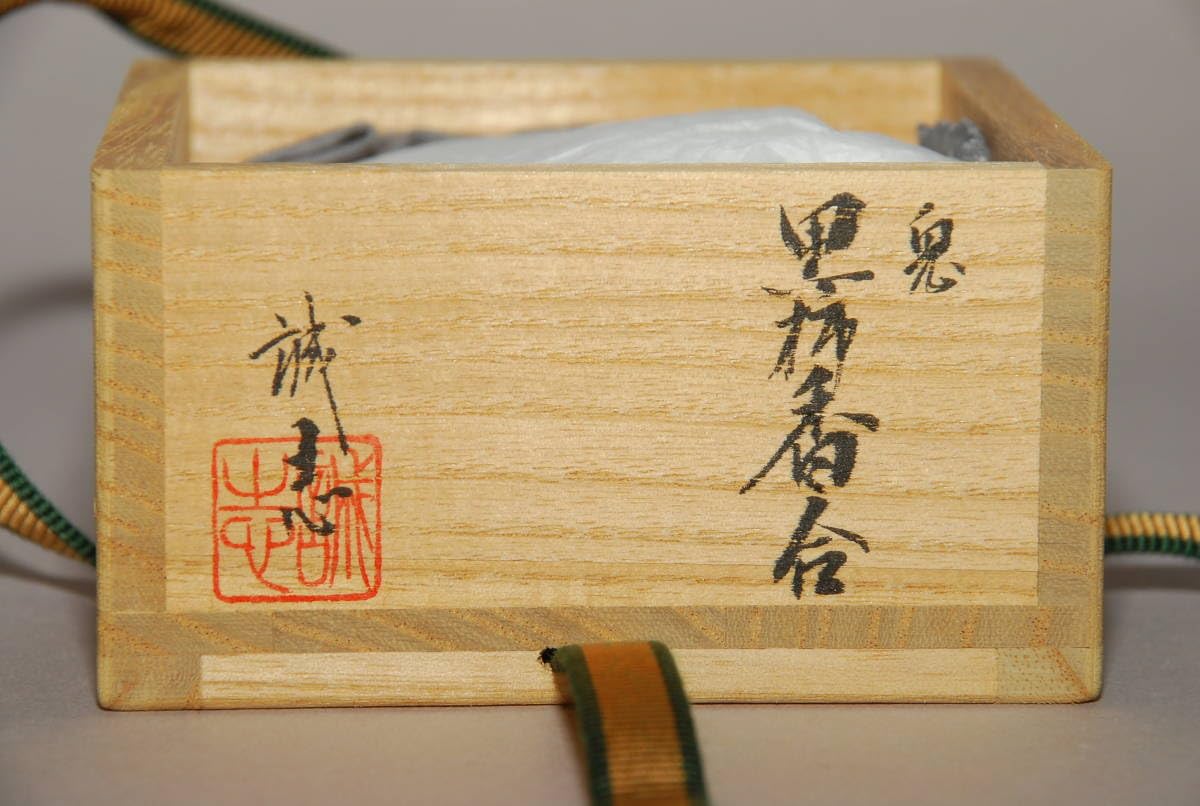 鬼
黒柿香合
誠志
誠志